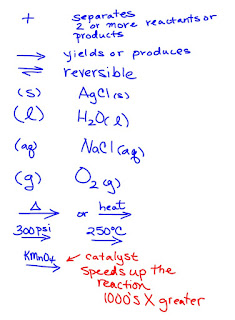 + separates
2 or more reactants or
products
→ yields or produces
⇌ reversible
(s) AgCl(s)
(l) H₂O(l)
(aq) NaCl(aq)
(g) O₂(g)
Δ→ or heat→
300psi→ 250°C→
KMnO₄→ ← catalyst
Speeds up the
reaction
1000's X greater